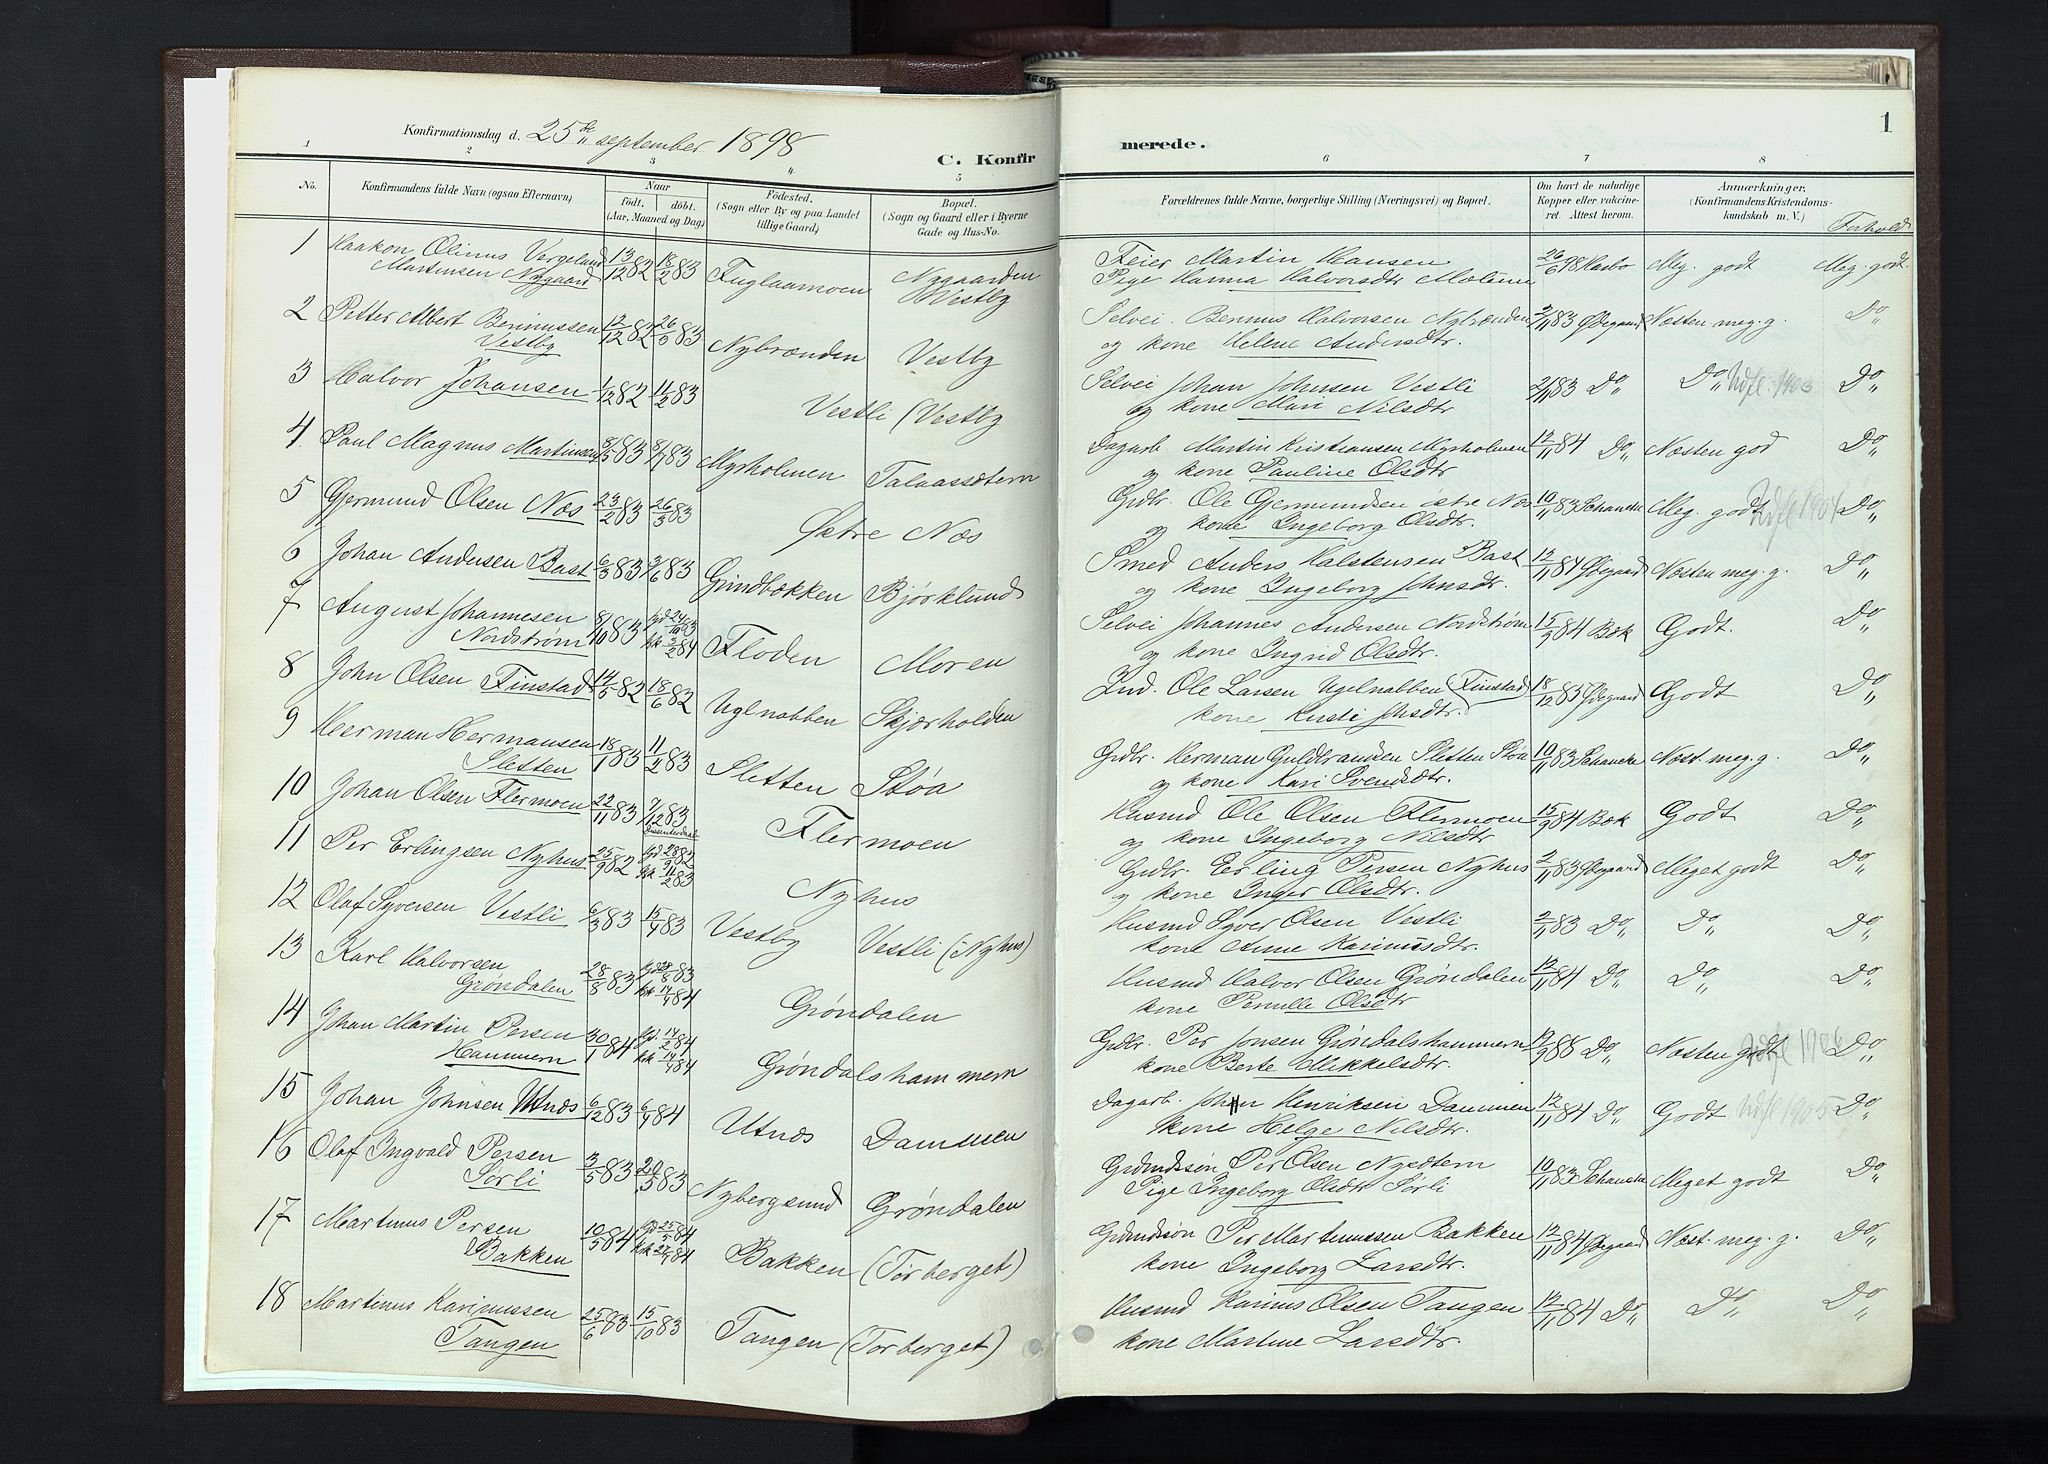 1
Konfirmationsdag d. 25de september 1898
C. Konfirmerede.
1 2 3 4 5 6 7 8
No. Konfirmandens fulde Navn (ogsaa Efternavn) Naar født. døbt. (Aar, Maaned og Dag) Fødested. (Sogn eller By og paa Landet tillige Gaard) Bopæl. (Sogn og Gaard eller i Byerne Gade og Hus-No. Forældrenes fulde Navne, borgerlige Stilling (Næringsvei) og Bopæl. Om havt de naturlige Kopper eller vaccineret. Attest herom. Anmærkninger. (Konfirmandens Kristendomskundskab m. V.) Forhold
1 Haakon Olinus Vergeland 13/12 82 18/2 83 Fuglaamoen Nygaarden Feier Martin Hansen 26/6 98 Harbo Meg. godt Meg. godt.
Martinsen Nygaard Vestby Pige Hanna Halvorsdtr
2 Petter Albert Berinussen 12/12 82 26/3 83 Nybrænden Vestby Selvei. Berinus Halvorsen Nybrænden 2/11 83 Ødegaard Næsten meg. g. Do
Vestby og kone Helene Andersdtr.
3 Halvor Johansen 1/12 82 11/2 83 Vestli (Vestby Selvei Johan Johnsen Vestli 2/11 83 Do Do Udfl. 1903 Do
og kone Mari Nilsdtr
4 Paul Magnus Martinsen 8/5 83 8/7 83 Myrholmen Talaassætern Dagarb. Martin Kristiansen Myrholmen 12/11 84 Do Næsten god Do
og kone Pauline Olsdtr
5 Gjermund Olsen Næs 23/2 83 26/3 83 Østre Næs Grdbr. Ole Gjermundsen østre Næs 10/11 83 Schancke Meg. godt Udfl 1901 Do
og kone Ingeborg Olsdtr.
6 Johan Andersen Bast 6/3 83 3/6 83 Grindbækken Bjørklund Smed Anders Halstensen Bast 12/11 84 Ødegaard Næsten meg. g. Do
og kone Ingeborg Johnsdtr.
7 August Johannesen 8/10 83 hjd 24/10 83 Floden Moren Selvei Johannes Andersen Nordstrøm 15/9 84 Bæk Godt. Do
Nordstrøm kk 3/2 84 og kone Ingrid Olsdtr.
8 John Olsen Finstad 14/5 82 18/6 82 Uglnabben Skjærholden Ind. Ole Larsen Uglnabben (Finstad) 18/12 83 Ødegaard Godt Do
kone Kusti Johsdtr.
9 Herman Hermansen 18/1 83 11/2 83 Sletten Støa Grdbr. Herman Guldbransen Sletten Støa 10/11 83 Schancke Næst. meg. g. Do
Sletten og kone Kari Svendsdtr.
10 Johan Olsen Flermoen 22/11 83 7/12 83 Flermoen Husmd Ole Olsen Flermoen 15/9 84 Bæk Godt Do
og kone Ingeborg Nilsdtr
11 Per Erlingsen Nyhus 25/9 82 hjd 28/9 82 Nyhus Grdbr. Erling Persen Nyhus 2/11 83 Ødegaard Meget godt Do
kk 11/2 83 og kone Inger Olsdtr.
12 Olaf Syversen Vestli 6/3 83 15/4 83 Vestby Vestli (Nyhus) Husmd Syver Olsen Vestli 2/11 83 Do Do Do
kone Anne Karinusdtr.
13 Karl Halvorsen 28/8 83 hjd 28/8 83 Grøndalen Husmd Halvor Olsen Grøndalen 12/11 84 Do Do Do
Grøndalen kk 14/4 84 kone Pernille Olsdtr
14 Johan Martin Persen 30/1 84 hjd. 14/2 84 Grøndalshammern Grdbr. Per Jonsen Grøndalshammern 12/9 88 Do Næsten godt Do
Hammern kk 14/4 84 kone Berte Mikkelsdtr.
15 Johan Johnsen Utnæs 6/12 83 6/4 84 Utnæs Dammen Dagarb. John Henriksen Dammen 12/11 84 Do Godt Udfl 1905 Do
kone Helge Nilsdtr.
16 Olaf Ingvald Persen 3/5 83 20/5 83 Nybergsund Grøndalen Grdmdssøn Per Olsen Nysætern 10/11 83 Schancke Meget godt Do
Sørli Pige Ingeborg Olsdtr Sørli
17 Martinus Persen 10/5 84 hjd 25/5 84 Bakken (Torberget) Grdmdssøn Per Martinussen Bakken 12/11 84 Ødegaard Næst. meg. g. Do
Bakken kone Ingeborg Larsdtr.
18 Martinus Karinussen 25/6 83 15/10 83 Tangen (Torberget) Husmd Karinus Olsen Tangen 12/11 84 Do Do Do
Tangen kone Martine Larsdtr.